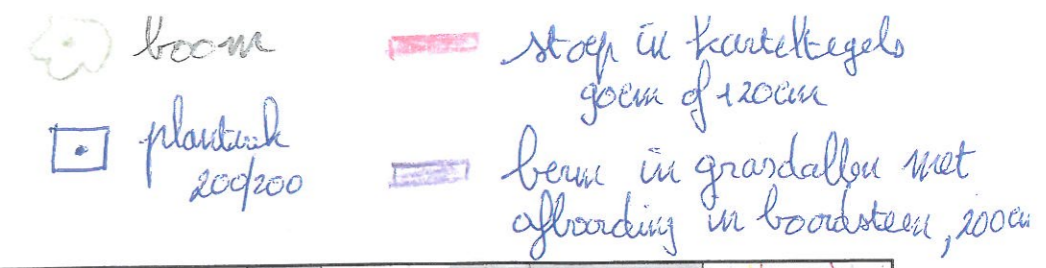 boom
plantvak
200/200
stoep in karteltegels
90cm of 120cm
berm in grasdallen met
afboording in boordsteen, 200cm